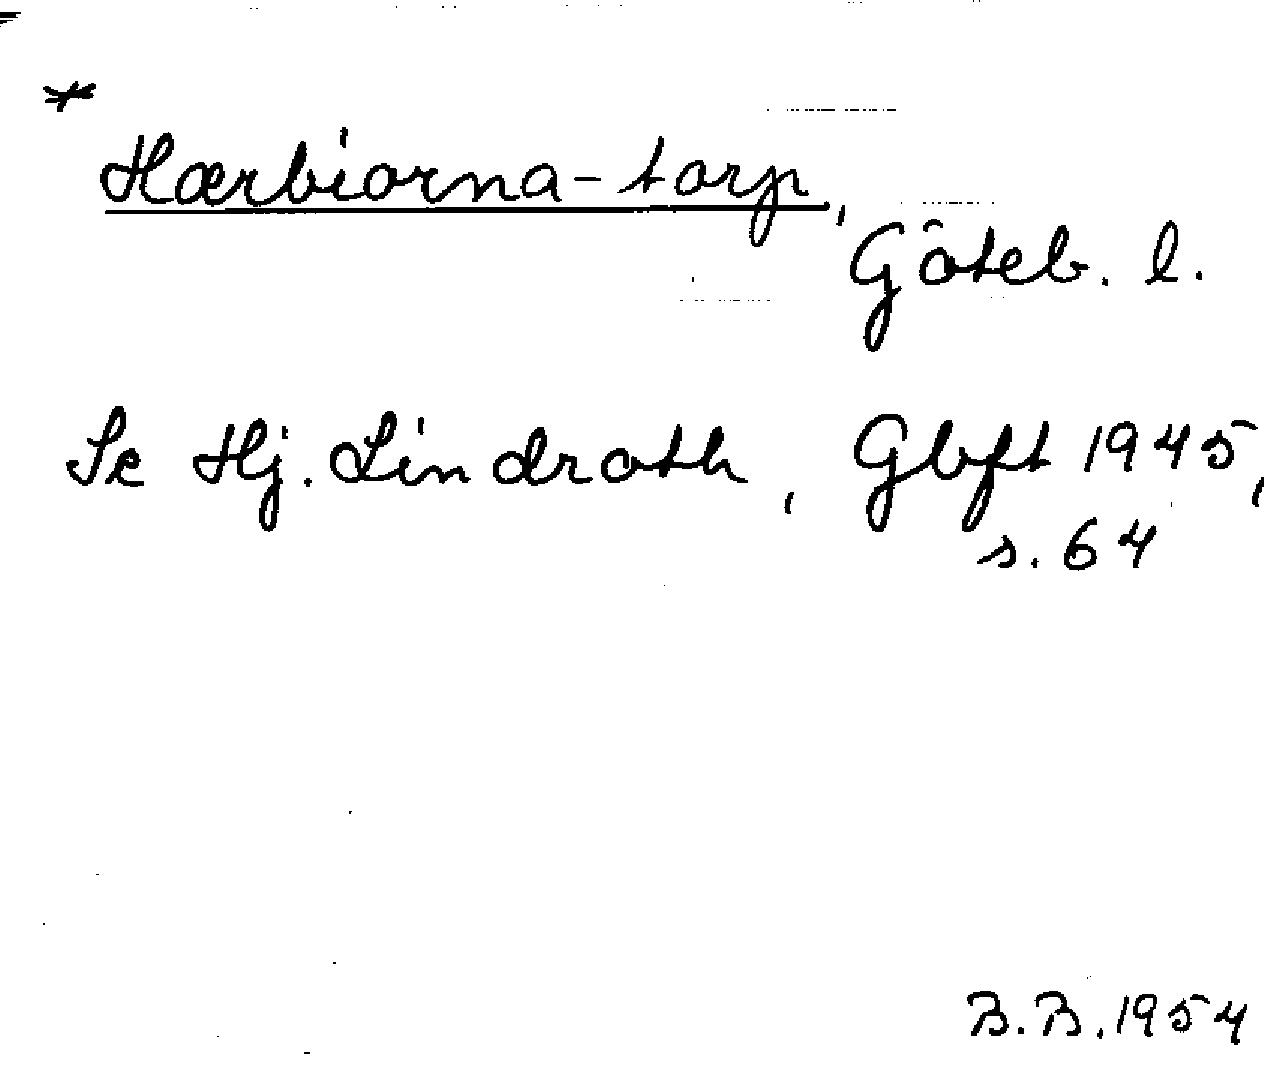 *
Hærbiorna-torp,
Göteb. l.
Se Hj. Lindroth, Gbft 1945,
s. 64
B.B. 1954